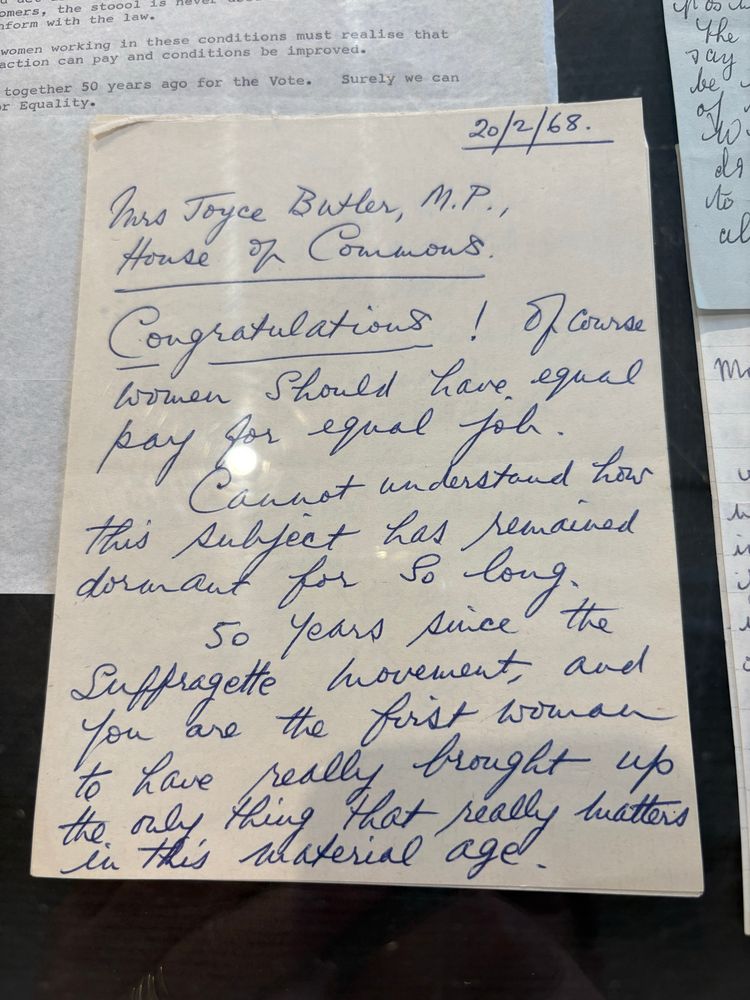 omers, the stoool is never
nform with the law.
women working in these conditions must realise that
action can pay and conditions be improved.
together 50 years ago for the Vote. Surely we can
or Equality.
20/2/68.
Mrs Joyce Butler, M.P.,
House of Commons.
Congratulations! Of course
women should have equal
pay for equal job.
Cannot understand how
this subject has remained
dormant for so long.
50 years since the
Suffragette movement, and
you are the first woman
to have really brought up
the only thing that really matters
in this material age.
the
say
be
of
to